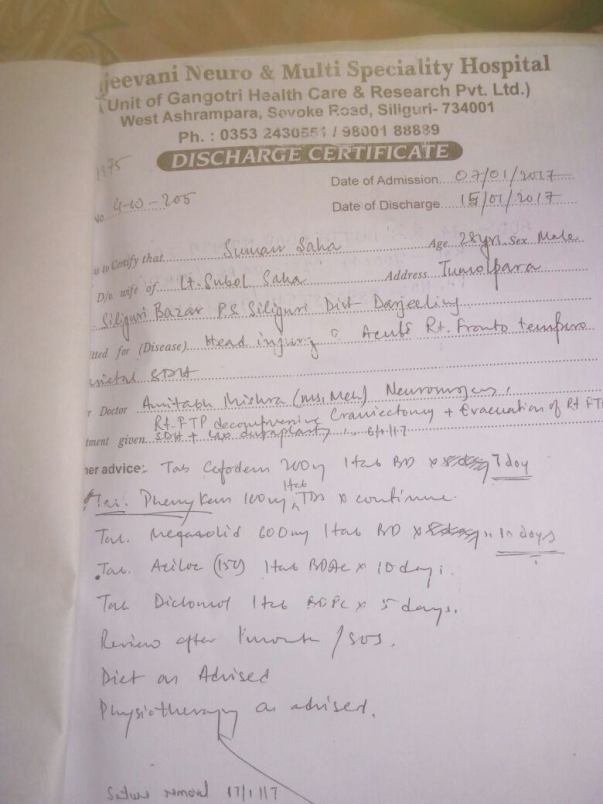 jeevani Neuro & Multi Speciality Hospital
(Unit of Gangotri Health Care & Research Pvt. Ltd.)
West Ashrampara, Sevoke Road, Siliguri- 734001
Ph. : 0353 2430551 / 98001 88889
DISCHARGE CERTIFICATE
1975
Date of Admission 07/01/2017
No 4-10-205
Date of Discharge 15/01/2017
to Certify that Suman Saha Age 28yrs Sex Male
D/o. wife of Lt. Subol Saha Address Tumolpara
Siliguri Bazar P.S Siliguri Dist Darjeeling
itted for (Disease) Head injury c Acute Rt. Fronto temporo
SDH
r Doctor Amitabh Mishra (MS, Mch)
Rt. FTP decompressive Craniectomy + Evacuation of Rt FTP
tment given SDH + lax duraplasty
er advice: Tab 200mg 1tab BD x 7 day
100mg 1tab TDS x continue
Tab. 600mg 1tab BD x 10 days
Tab. Aciloc (150) 1tab BDAC x 10 days
Tab 1tab BDPC x 5 days.
Review after 1 month / SOS.
Diet as Advised
Physiotherapy as advised.
Suture removal 17/1/17